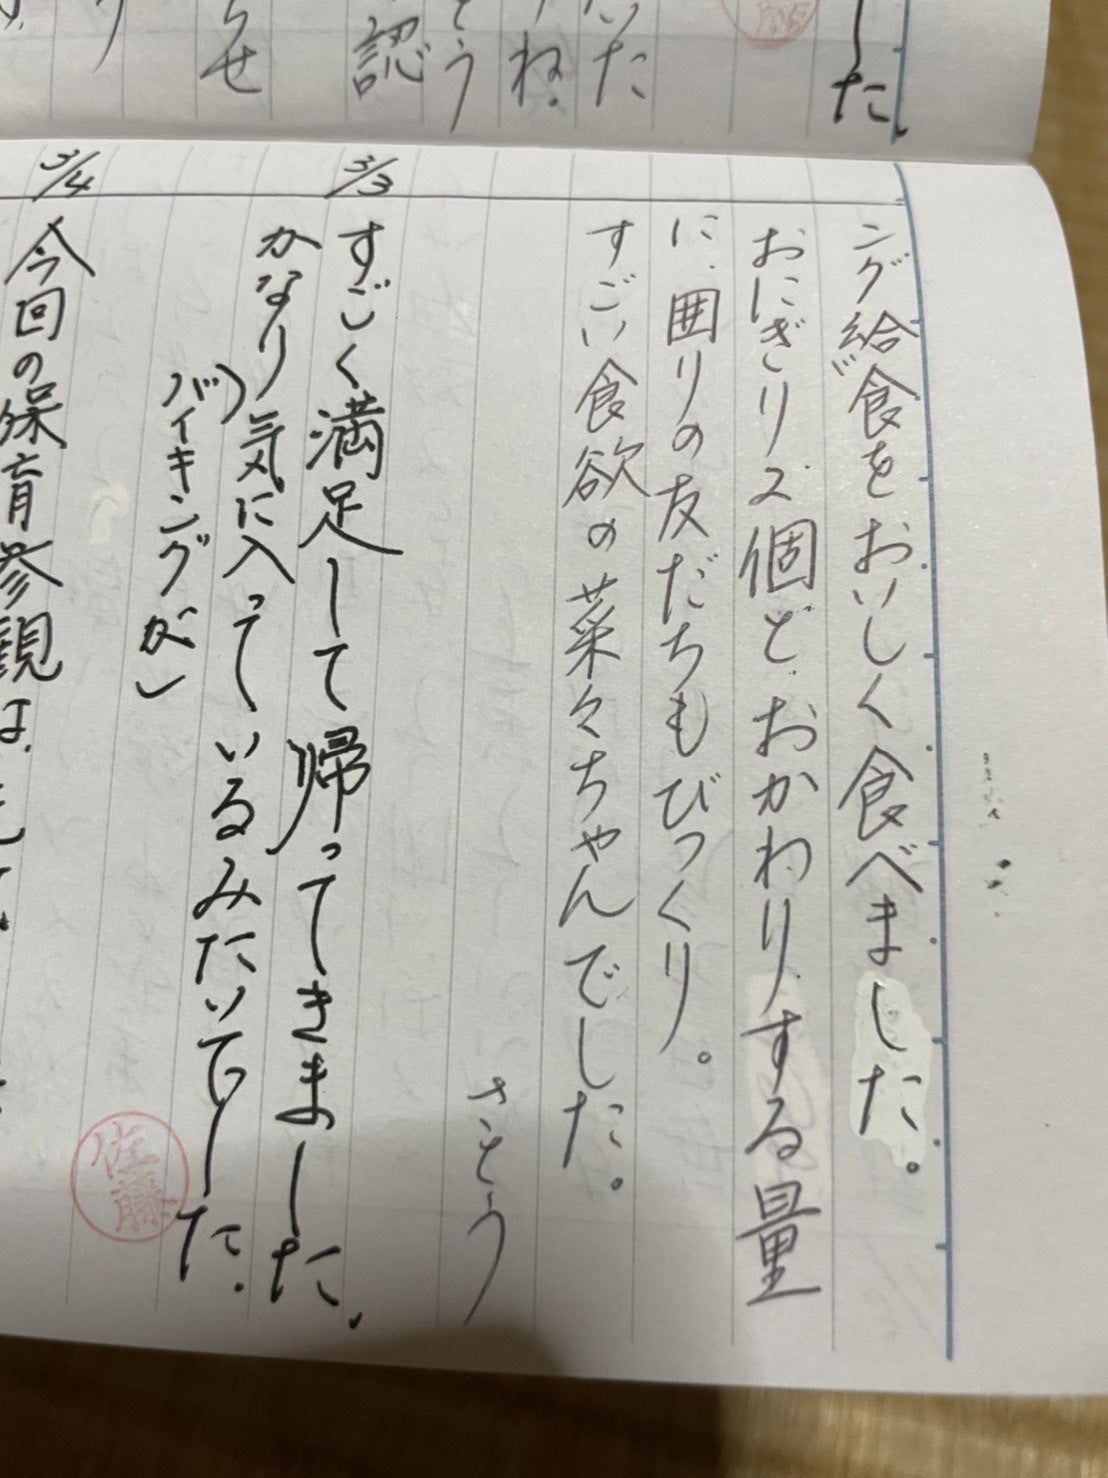 した、
いた
ね。
認
らせ
ング給食をおいしく食べました。
おにぎり2個とおかわりする量
に、囲りの友だちもびっくり。
すごい食欲の菜々ちゃんでした。
さとう
3/3
すごく満足して帰ってきました、
かなり気に入っているみたいでした。
(バイキングが)
佐藤
3/4
今回の保育参観は、